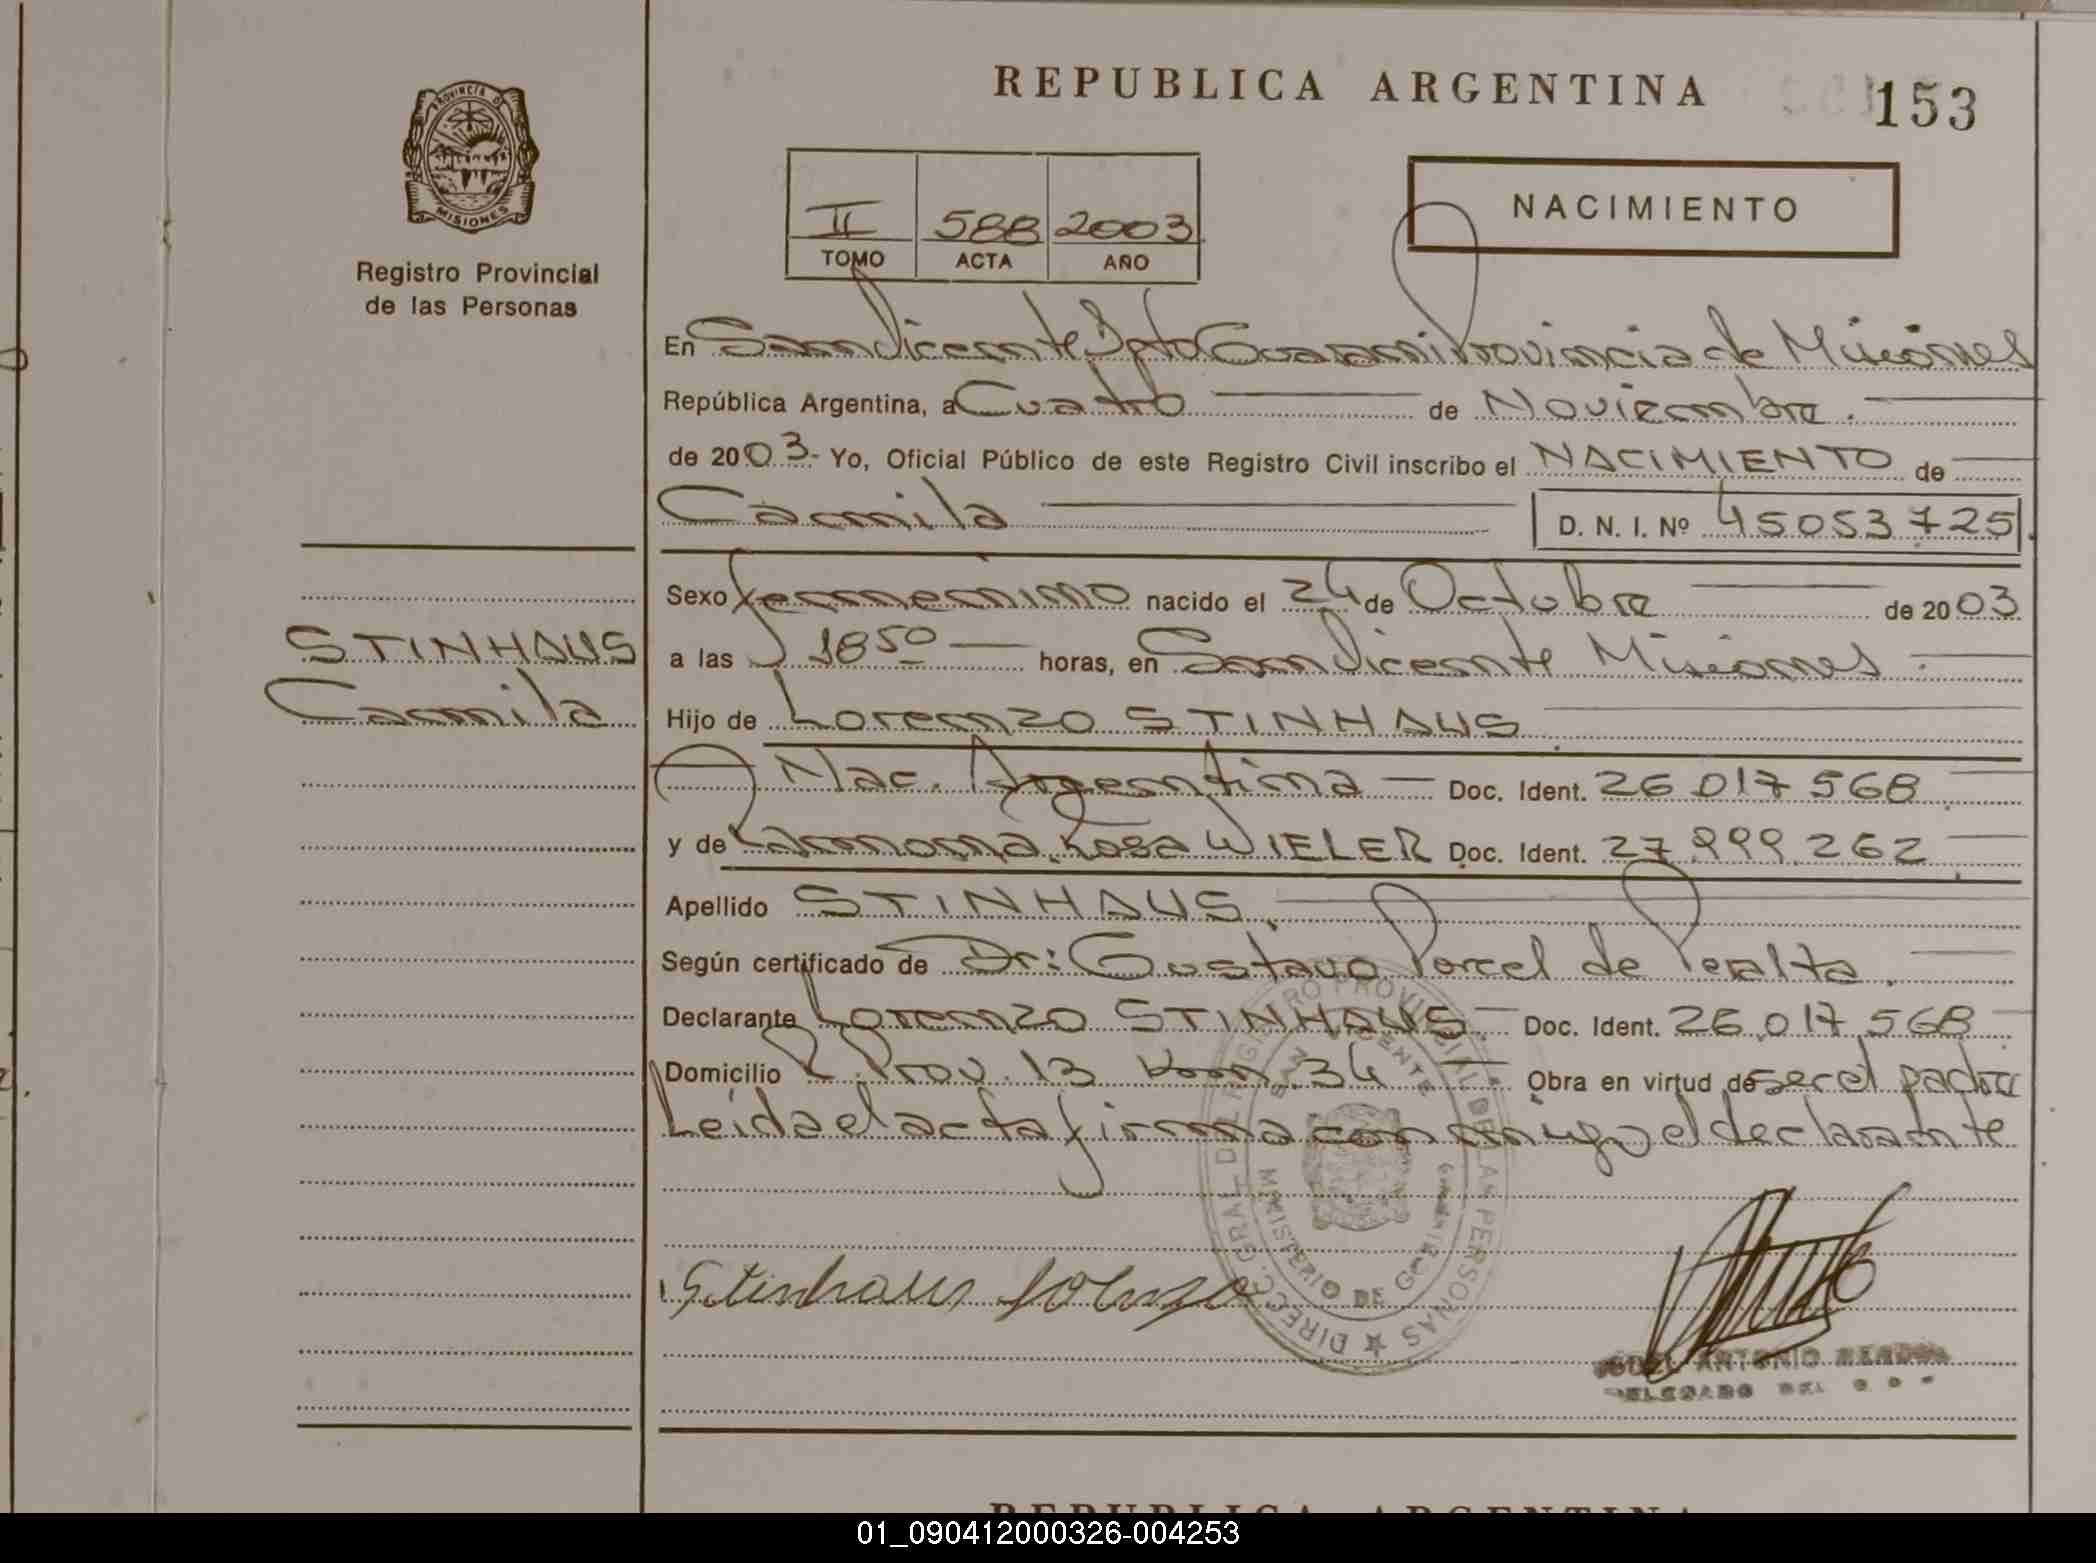 REPUBLICA ARGENTINA
153
PROVINCIA DE
MISIONES
Registro Provincial
de las Personas
II 588 2003
TOMO ACTA AÑO
NACIMIENTO
En San Vicente Dpto Guarani Provincia de Misiones
República Argentina, a Cuatro de Noviembre.
de 2003- Yo, Oficial Público de este Registro Civil inscribo el NACIMIENTO de
Camila D. N. I. Nº 45053725
Sexo femenino nacido el 24 de Octubre de 2003
STINHAUS
a las 18 50 horas, en San Vicente Misiones.
Camila
Hijo de Lorenzo STINHAUS
Nac. Argentina Doc. Ident. 26.017.568
y de Ramona Rosa WIELER Doc. Ident. 27.999.262
Apellido STINHAUS.
Según certificado de Dr: Gustavo Porcel de Peralta.
Declarante Lorenzo STINHAUS Doc. Ident. 26.017.568
Domicilio R. Prov. 13 Km. 34 Obra en virtud de ser el padre
Leida el acta firma conmigo el declarante
DIREC. GRAL. DEL REGISTRO PROVINCIAL DE LAS PERSONAS
SAN VICENTE
MINISTERIO DE GOBIERNO
Stinhaus Lorenzo
ANTONIO
DELEGADO DEL
REPUBLICA ARGENTINA
01_090412000326-004253